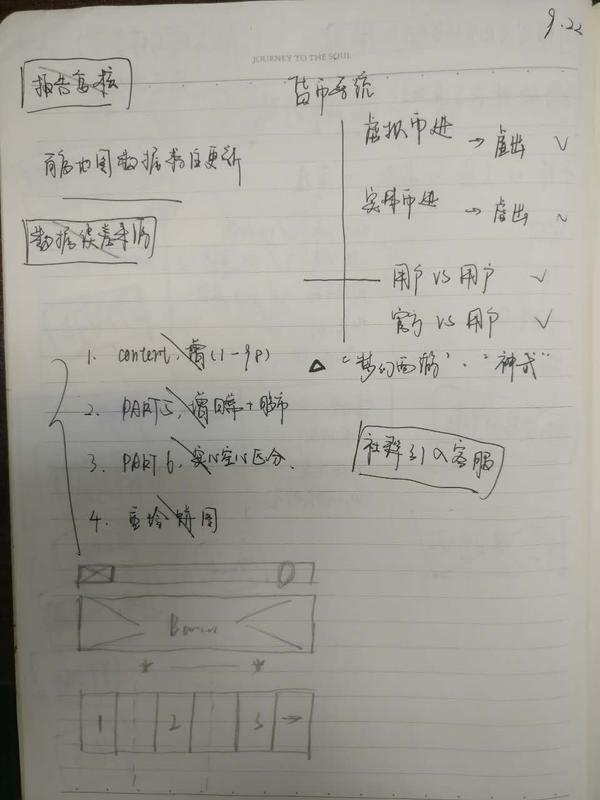 9.22
JOURNEY TO THE SOUL
报告复核
百度地图数据为自更新
数据误差来源
1. content, 增(1-9P)
2. PART5, 增口岸+股市
3. PART 6, 实心空心区分.
4. 重绘饼图
货币系统
虚拟币进 → 虚出 √
实体币进 → 虚出 ~
用户 VS 用户 √
官方 VS 用户 √
△ "梦幻西游"、"神武"
社群引入客服
Banner
1 2 3 →